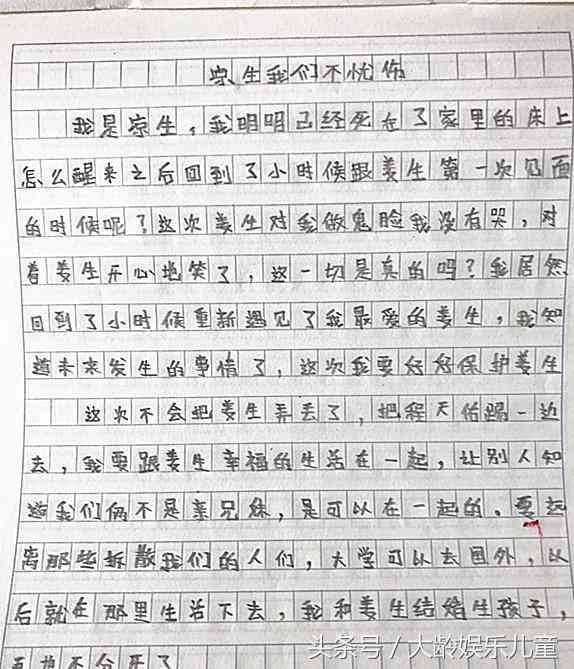 凉生我们不忧伤
我是凉生，我明明已经死在了家里的床上
怎么醒来之后回到了小时候跟姜生第一次见面
的时候呢？这次姜生对我做鬼脸我没有哭，对
着姜生开心地笑了，这一切是真的吗？我居然
回到了小时候重新遇见了我最爱的姜生，我知
道未来发生的事情了，这次我要好好保护姜生
这次不会把姜生弄丢了，把程天佑踢一边
去，我要跟姜生幸福的生活在一起，让别人知
道我们俩不是亲兄妹，是可以在一起的，要远
离那些拆散我们的人们，大学可以去国外，以
后就在那里生活下去，我和姜生结婚生孩子，
再也不分开了
头条号／大龄娱乐儿童